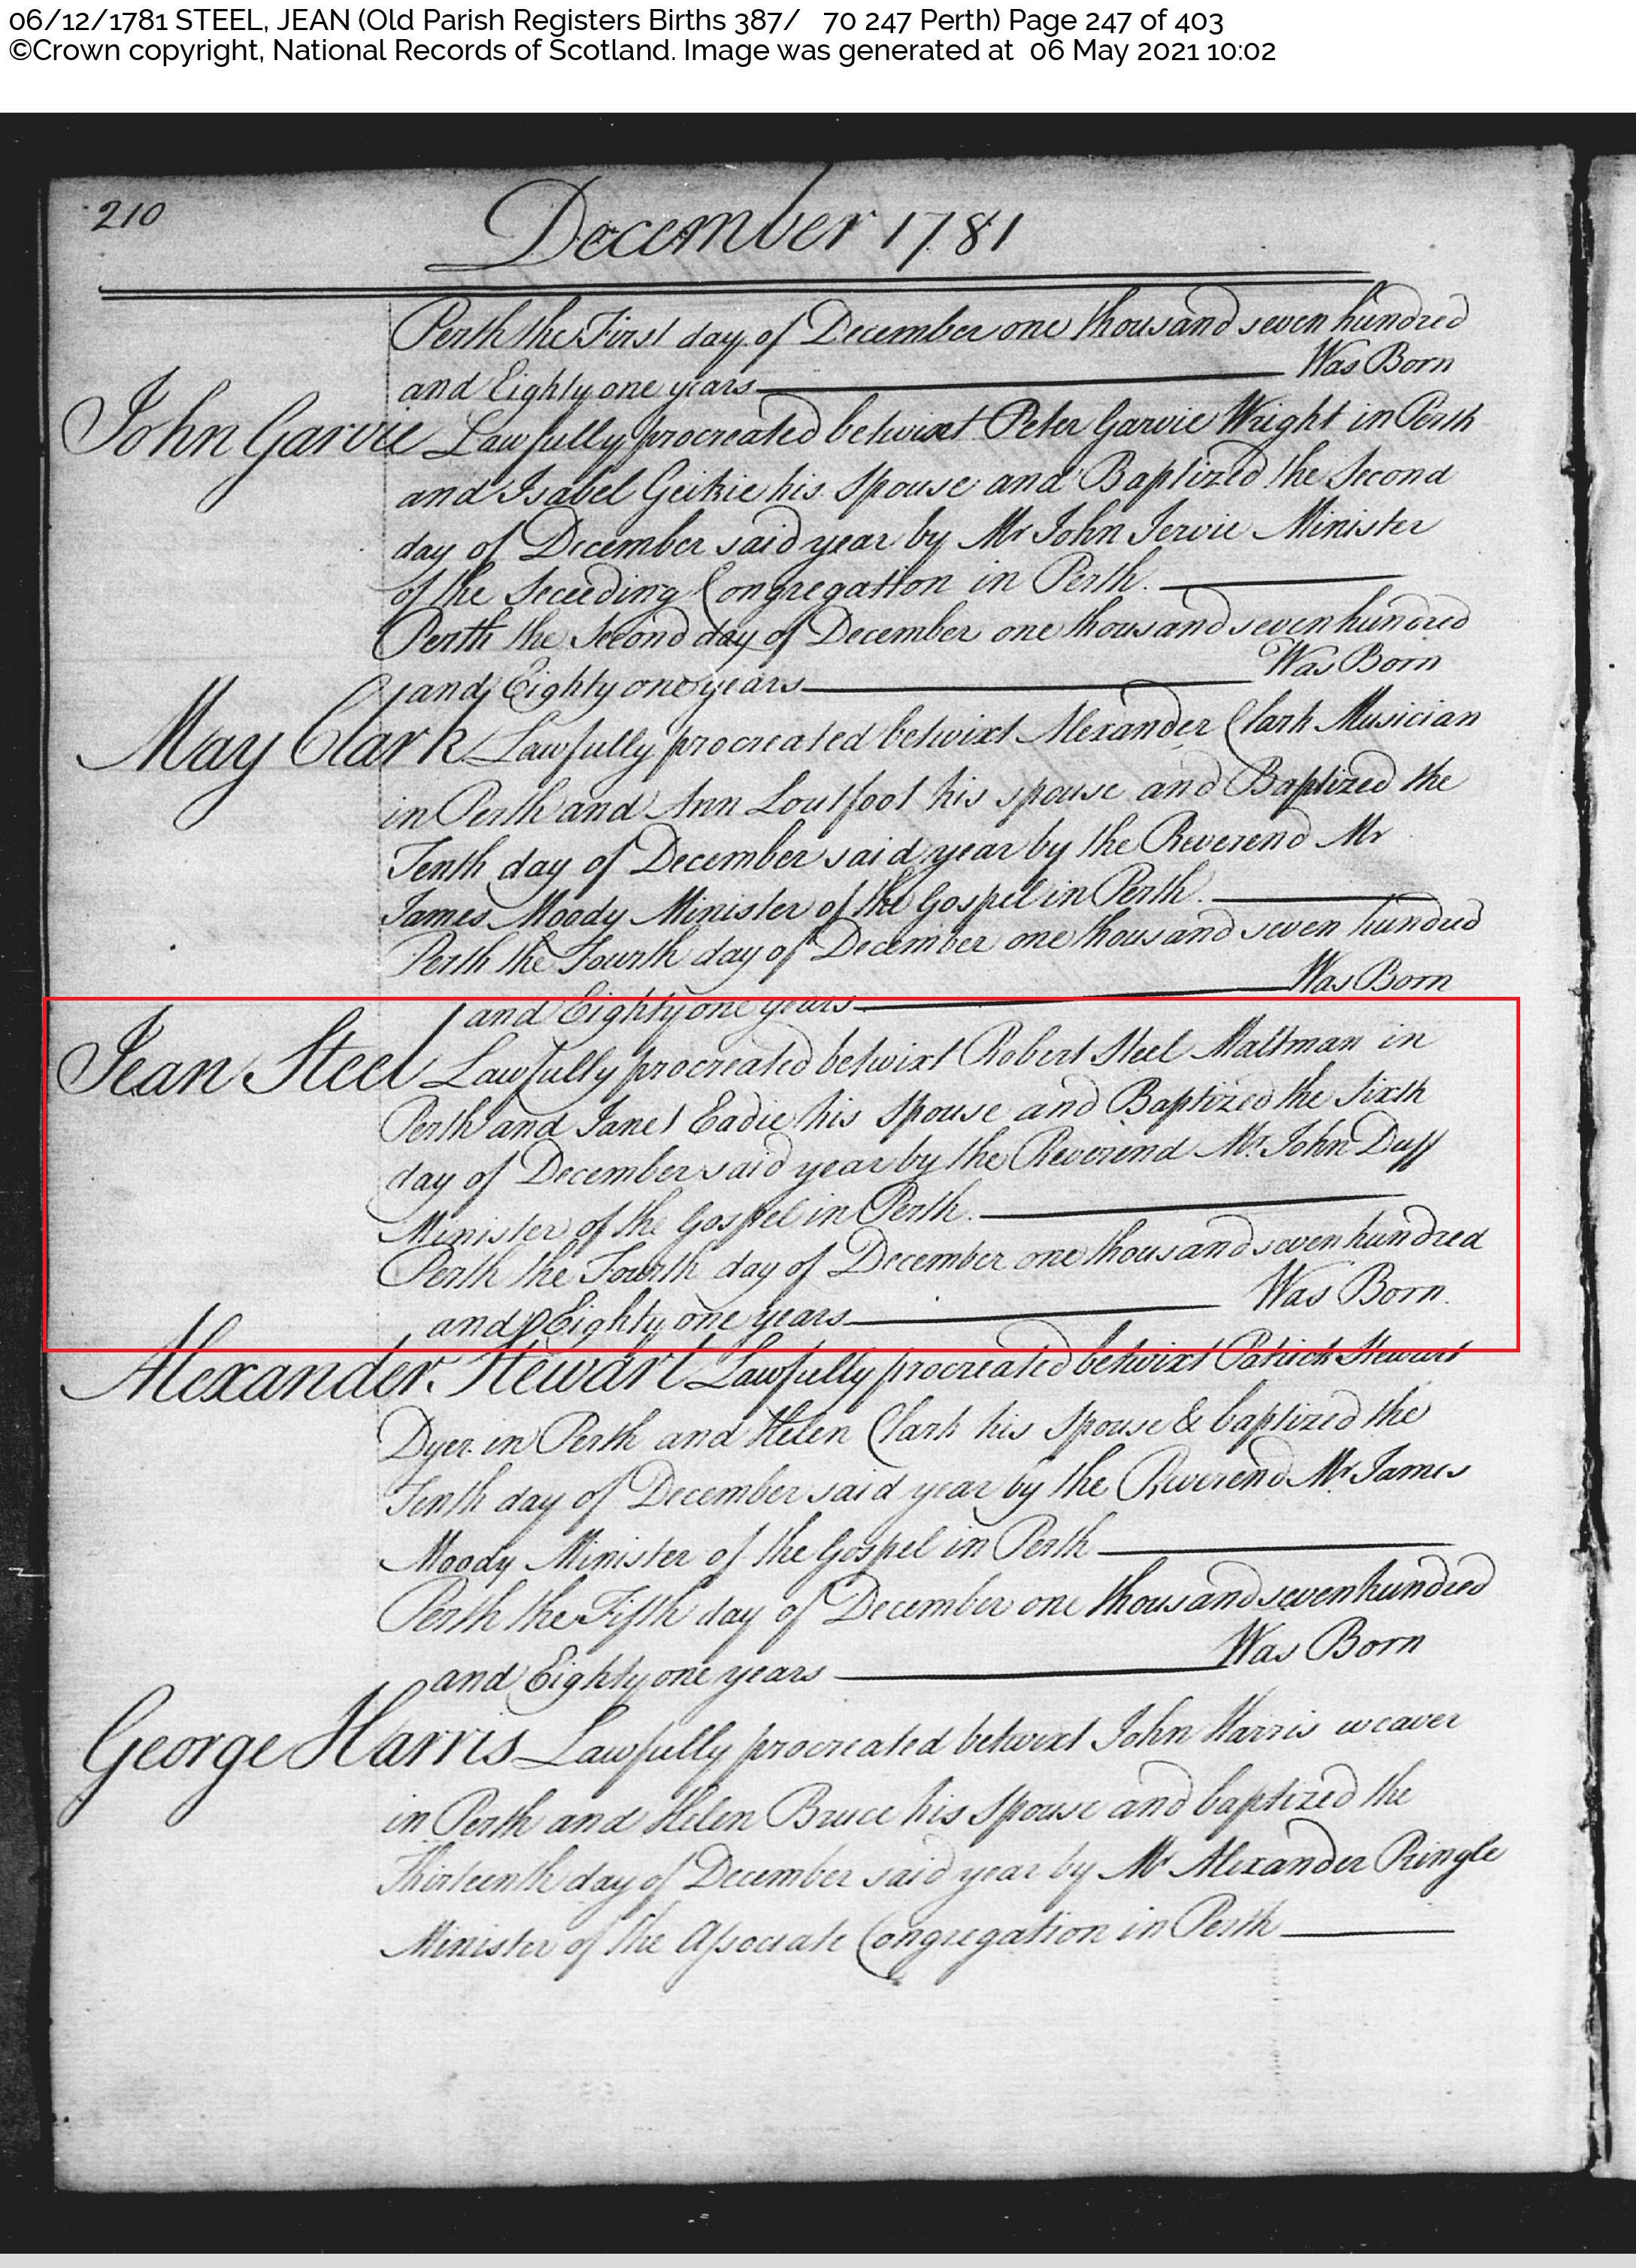 06/12/1781 STEEL, JEAN (Old Parish Registers Births 387/ 70 247 Perth) Page 247 of 403
©Crown copyright, National Records of Scotland. Image was generated at 06 May 2021 10:02
210
December 1781
Perth the First day of December one thousand seven hundred
and Eighty one years Was Born
John Garvie Lawfully procreated betwixt Peter Garvie Wright in Perth
and Isabel Geikie his Spouse and Baptized the Second
day of December said year by Mr John Jervie Minister
of the Seceeding Congregation in Perth.
Perth the Second day of December one thousand seven hundred
and Eighty one years Was Born
May Clark Lawfully procreated betwixt Alexander Clark Musician
in Perth and Ann Loutfoot his spouse and Baptized the
Tenth day of December said year by the Reverend Mr
James Moody Minister of the Gospel in Perth.
Perth the Fourth day of December one thousand seven hundred
and Eighty one years Was Born
Jean Steel Lawfully procreated betwixt Robert Steel Maltman in
Perth and Janet Eadie his Spouse and Baptized the Sixth
day of December said year by the Reverend Mr. John Duff
Minister of the Gospel in Perth.
Perth the Fourth day of December one thousand seven hundred
and Eighty one years Was Born.
Alexander Stewart Lawfully procreated betwixt Patrick Stewart
Dyer in Perth and Helen Clark his Spouse & baptized the
Tenth day of December said year by the Reverend Mr. James
Moody Minister of the Gospel in Perth
Perth the Fifth day of December one thousand seven hundred
and Eighty one years Was Born
George Harris Lawfully procreated betwixt John Harris weaver
in Perth and Helen Bruce his Spouse and baptized the
Thirteenth day of December said year by Mr Alexander Pringle
Minister of the Associate Congregation in Perth